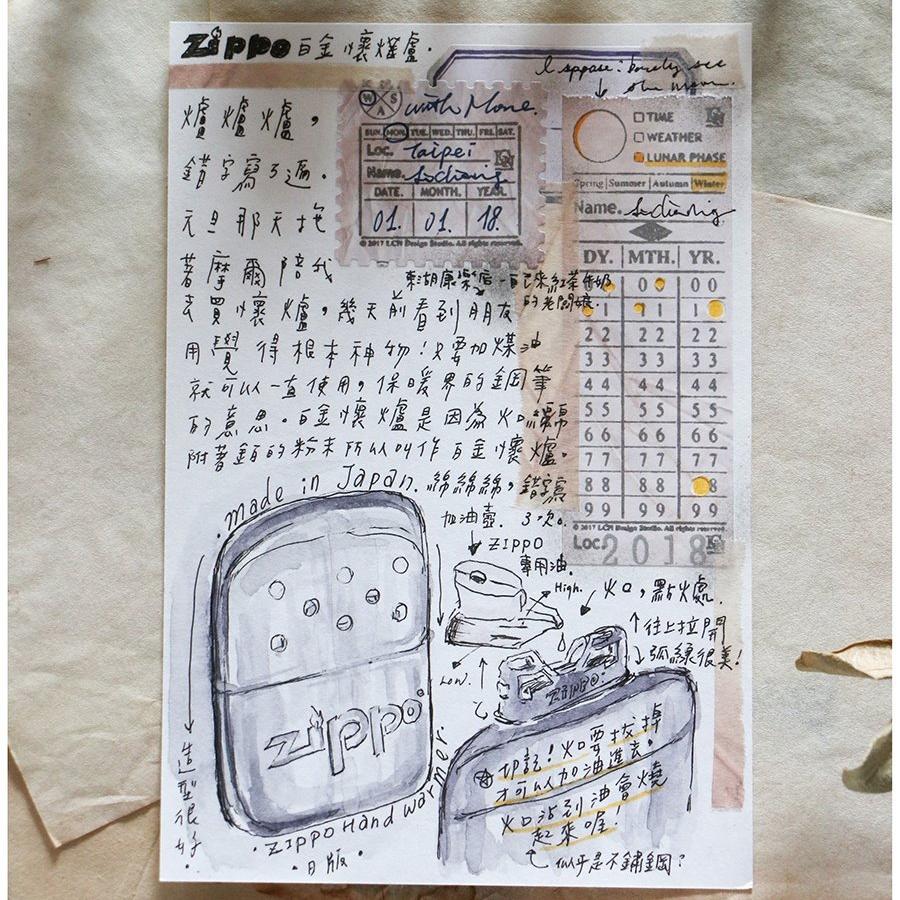 Zippo 白金懷爐爐.
I suppose: barely see
the moon.
爐爐爐,
錯字寫3遍.
元旦那天拖
著摩爾陪我
去買懷爐,幾天前看到朋友
用覺得根本神物!只要加煤油
就可以一直使用,保暖界的鋼筆
的意思。白金懷爐是因為火口綿
附著鉑的粉末所以叫作白金懷爐。
W S A
with More.
SUN. MON. TUE. WED. THU. FRI. SAT.
Loc. Taipei
Name.
DATE. MONTH. YEAR.
01. 01. 18.
© 2017 LCN Design Studio. All rights reserved.
東湖康樂店
紅茶牛奶
的老闆娘.
TIME
WEATHER
LUNAR PHASE
Spring Summer Autumn Winter
Name.
DY. MTH. YR.
0 0 0
1 1 1
22 22 22
33 33 33
44 44 44
55 55 55
66 66 66
77 77 77
88 88 8
99 99 99
© 2017 LCN Design Studio. All rights reserved.
Loc. 2018
.made in Japan.
綿綿綿,錯字寫
3次。
加油壺.
ZIPPO
專用油.
High.
Low.
火口,點火處.
往上拉開
弧線很美!
ZIPPO
zippo
造型很好.
.ZIPPO Hand warmer
.日版.
切記!火口要拔掉
才可以加油進去.
火口沾到油會燒
起來喔!
似乎是不鏽鋼?